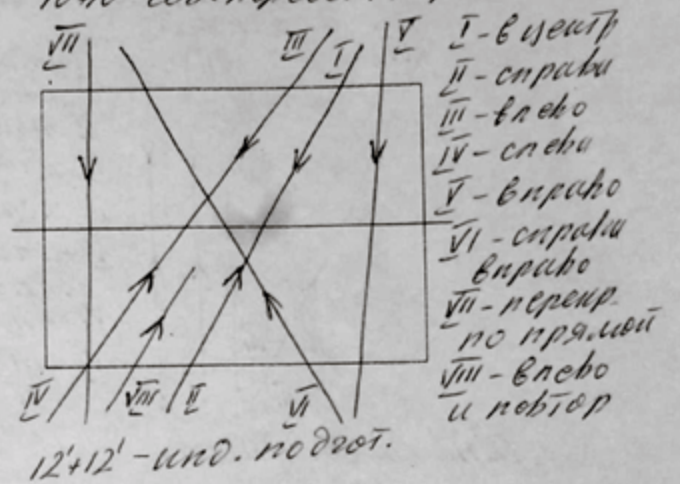 VII
III
I
V
I - в центр
II - справа
III - влево
IV - слева
V - вправо
VI - справа
вправо
VII - перекр.
по прямой
VIII - влево
и повтор
IV
VIII
II
VI
12'+12' - инд. подгот.